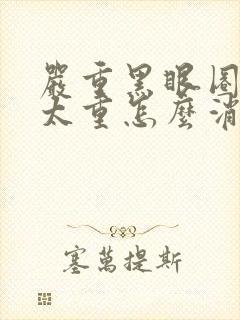 嚴重黑眼圈
太重怎麼消
塞萬提斯